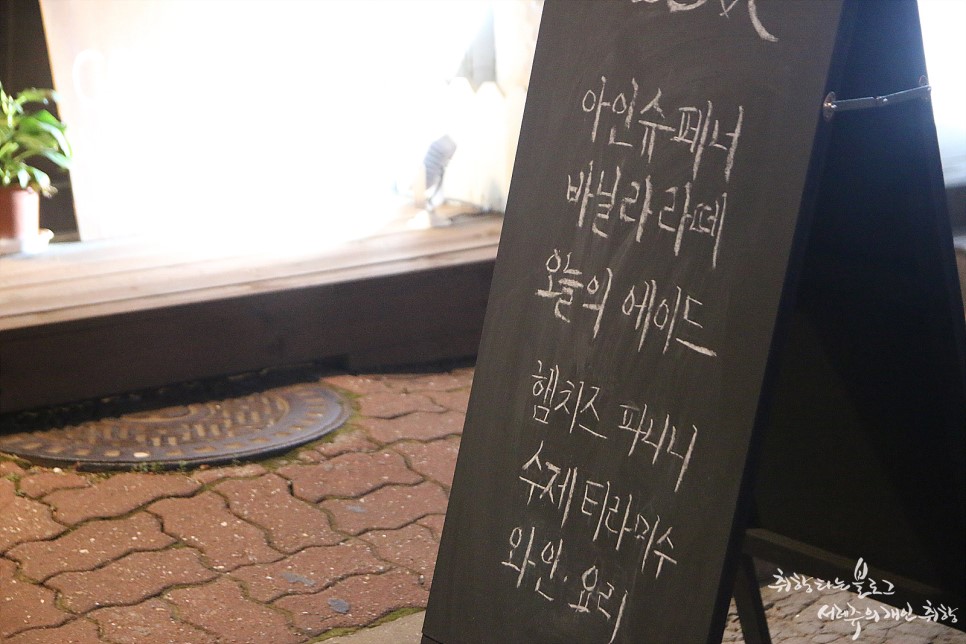 아인슈페너
바닐라 라떼
오늘의 에이드
햄치즈 파니니
수제 티라미수
와인·요리
취향타는 블로그
서래쥬의 개인 취향